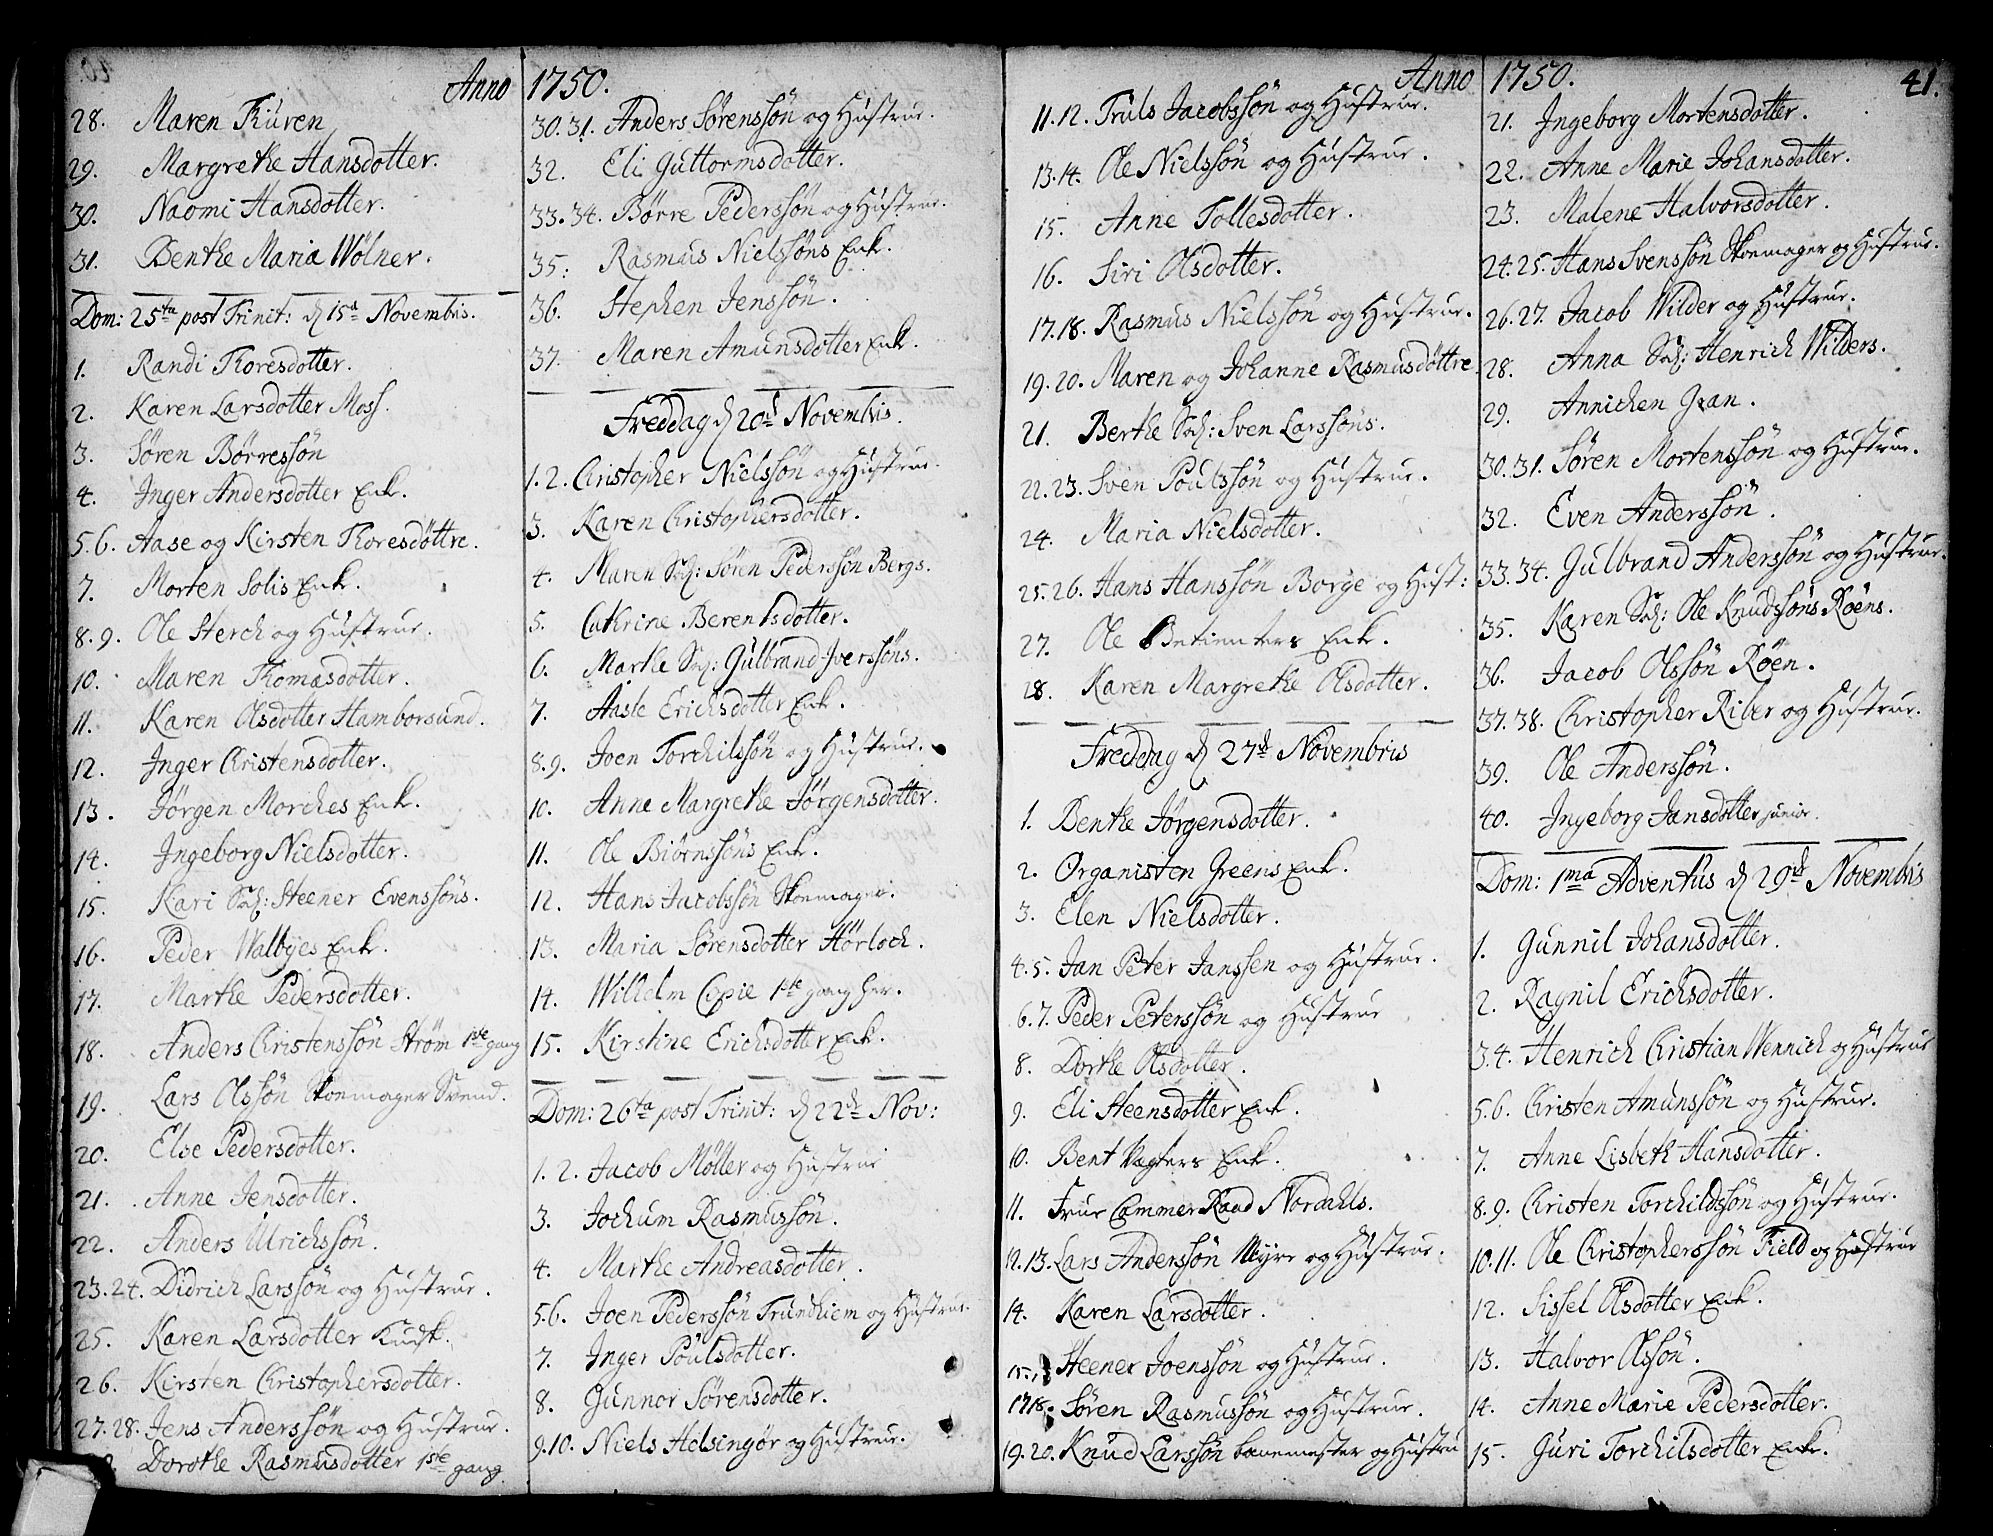 Anno 1750.
28. Maren Thüren
29. Margrethe Hansdotter.
30. Naomi Hansdotter.
31. Benthe Maria Wölner.
Dom: 25ta post Trinit: d 15d Novembris.
1. Randi Thoresdotter.
2. Karen Larsdotter Moss.
3. Sören Börressön
4. Inger Andersdotter Enk.
5.6. Aase og Kirsten Thoresdöttre.
7. Morten Solis Enk.
8.9. Ole Sterch og Hustrue.
10. Maren Thomasdotter.
11. Karen Olsdotter Hamborsund.
12. Inger Christensdotter.
13. Jörgen Morches Enk.
14. Ingeborg Nielsdotter.
15. Kari Sal: Steener Evenssöns.
16. Peder Walbyes Enk.
17. Marthe Pedersdotter.
18. Anders Christenssön Ström 1ste gang
19. Lars Olssön Skoemager Svend.
20. Else Pedersdotter.
21. Anne Jensdotter.
22. Anders Ulrichssön.
23.24. Didrich Larssön og Hustrue.
25. Karen Larsdotter Kudsk.
26. Kirsten Christophersdotter.
27.28. Jens Anderssön og Hustrue.
Dorothe Rasmusdotter 1ste gang.
30.31. Anders Sörenssön og Hustrue.
32. Eli Guttormsdotter.
33.34. Börre Pederssön og Hustrue.
35. Rasmus Nielssöns Enk.
36. Stephen Jenssön.
37. Maren Amunsdotter Enk.
Freddag d 20d Novembris.
1.2. Christopher Nielssön og Hustrue.
3. Karen Christophersdotter.
4. Maren Sal: Sören Pederssön Bergs.
5. Cathrine Berentsdotter.
6. Marthe Sal: Gulbrand Iverssöns.
7. Aasle Erichsdotter Enk.
8.9. Joen Torchilssön og Hustrue.
10. Anne Margrethe Jörgensdotter.
11. Ole Biörnssöns Enk.
12. Hans Jacobssön Skoemager.
13. Maria Sörensdotter Hörloch.
14. Wilhelm Copie 1ste gang her.
15. Kirstine Erichsdotter Enk.
Dom: 26ta post Trinit: d 22d Nov:
1.2. Jacob Möller og Hustrue
3. Jochum Rasmussön.
4. Marthe Andreasdotter.
5.6. Joen Pederssön Trundhiem og Hustrue.
7. Inger Poulsdotter.
8. Gunnor Sörensdotter.
9.10. Niels Helsingør og Hustrue.
Anno 1750. 41.
11.12. Truls Jacobssön og Hustrue.
13.14. Ole Nielssön og Hustrue.
15. Anne Tollesdotter.
16. Siri Olsdotter.
17.18. Rasmus Nielssön og Hustrue.
19.20. Maren og Johanne Rasmusdöttre
21. Berthe Sal: Sven Larssöns.
22.23. Sven Poulssön og Hustrue.
24. Maria Nielsdotter.
25.26. Hans Hanssön Borge og Hust:
27. Ole Betienters Enk.
28. Karen Margrethe Olsdotter.
Freddag d 27d Novembris
1. Benthe Jörgensdotter.
2. Organisten Greens Enk.
3. Elen Nielsdotter.
4.5. Jan Peter Janssen og Hustrue.
6.7. Peder Peterssön og Hustrue
8. Dorthe Olsdotter.
9. Eli Steensdotter Enk.
10. Bent Vagters Enk.
11. Frue Cammer Raad Nordahls.
12.13. Lars Anderssön Myre og Hustrue.
14. Karen Larsdotter.
15. Steener Joenssön og Hustrue.
17.18. Sören Rasmussön og Hustrue.
19.20. Knud Larssön banemester og Hustru
21. Ingeborg Mortensdotter.
22. Anne Marie Johansdotter.
23. Malene Halvorsdotter.
24.25. Hans Svenssön Skoemager og Hustrue.
26.27. Jacob Wilder og Hustrue.
28. Anna Sal: Henrich Wilders.
29. Annichen Gran.
30.31. Sören Mortenssön og Hustrue.
32. Even Anderssön.
33.34. Gulbrand Anderssön og Hustrue.
35. Karen Sal: Ole Knudssöns Röens.
36. Jacob Olssön Röen.
37.38. Christopher Riber og Hustrue.
39. Ole Anderssön.
40. Ingeborg Jansdotter junior.
Dom: 1ma Adventus d 29d Novembris
1. Gunnil Johansdotter.
2. Ragnil Erichsdotter.
3.4. Henrich Christian Wennich og Hustrue
5.6. Christen Amunssön og Hustrue.
7. Anne Lisbeth Hansdotter.
8.9. Christen Torchildssön og Hustrue.
10.11. Ole Christopherssön Field og Hustrue
12. Sissel Olsdotter Enk.
13. Halvor Olssön.
14. Anne Marie Pedersdotter.
15. Guri Torchilsdotter Enk.